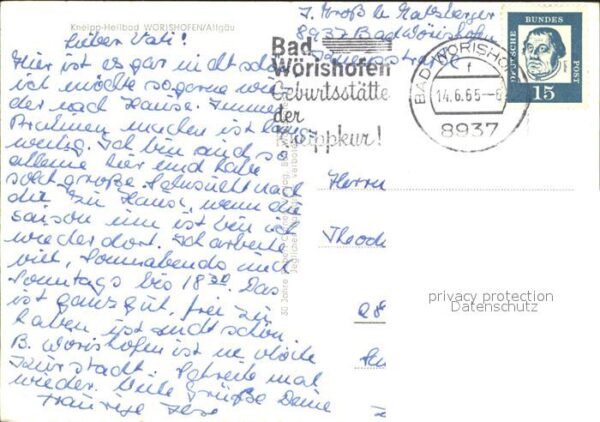 Kneipp-Heilbad WÖRISHOFEN/Allgäu
Lieber Vati!
Hier ist es gar nicht schön
ich möchte so gerne wie
der nach Hause. Immer
machen ist
wenig. Ich bin auch so
alleine hier und habe
solch große Sehnsucht nach
dir zu Hause, wenn die
saison um ist bin ich
wieder dort. Ich arbeite
viel, Sonnabends und
Sonntags bis 18 30. Das
ist ganz gut, frei zu
haben ist nicht schön.
B. Wörishofen ist ne
Kurstadt. Schreibe mal
wieder. Viele Grüße Deine
traurige Ilse
8937 Bad Wörishofen
Bad
Wörishofen
Geburtsstätte
der
Kneippkur!
BAD WÖRISHOFEN
f
14.6.65
8937
DEUTSCHE BUNDES POST
15
Herrn
privacy protection
Datenschutz